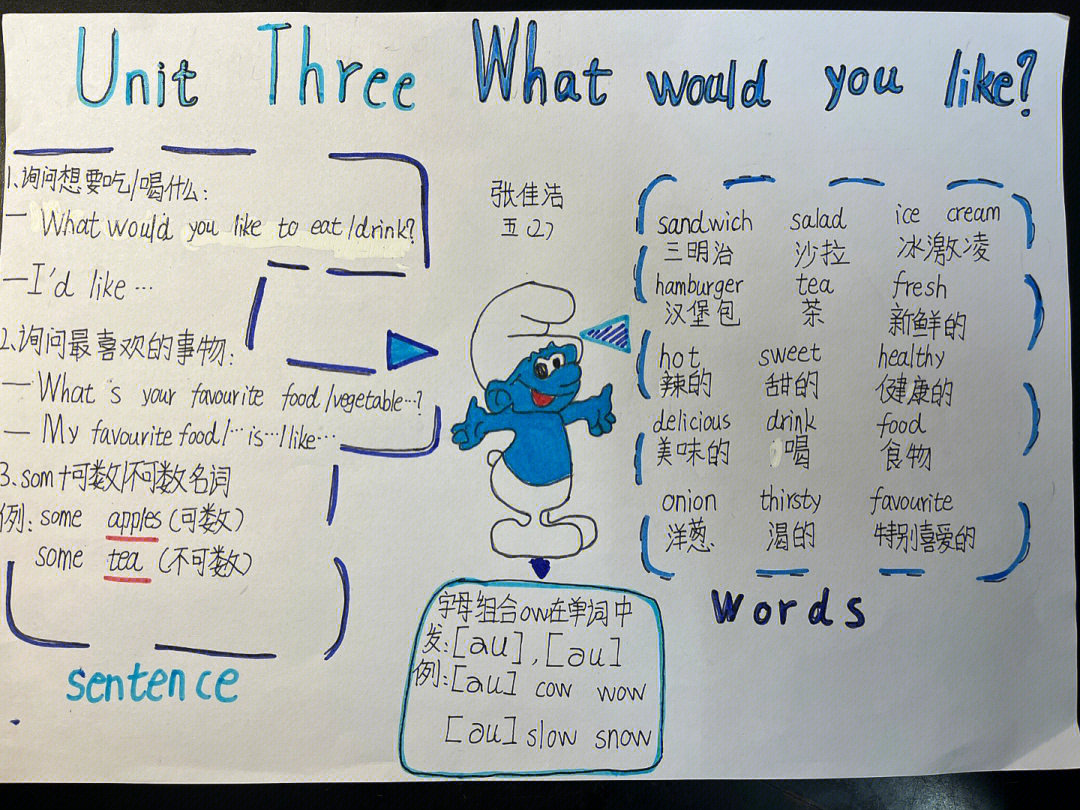 Unit Three What would you like?
1、询问想要吃/喝什么:
— What would you like to eat/drink?
— I'd like …
2、询问最喜欢的事物:
— What s your favourite food/vegetable…?
— My favourite food/… is…I like…
3、som+可数/不可数名词
例: some apples (可数)
some tea (不可数)
sentence
张佳浩
五(2)
字母组合ow在单词中
发:[au],[əu]
例:[au] cow wow
[əu] slow snow
sandwich salad ice cream
三明治 沙拉 冰激凌
hamburger tea fresh
汉堡包 茶 新鲜的
hot sweet healthy
辣的 甜的 健康的
delicious drink food
美味的 喝 食物
onion thirsty favourite
洋葱 渴的 特别喜爱的
words